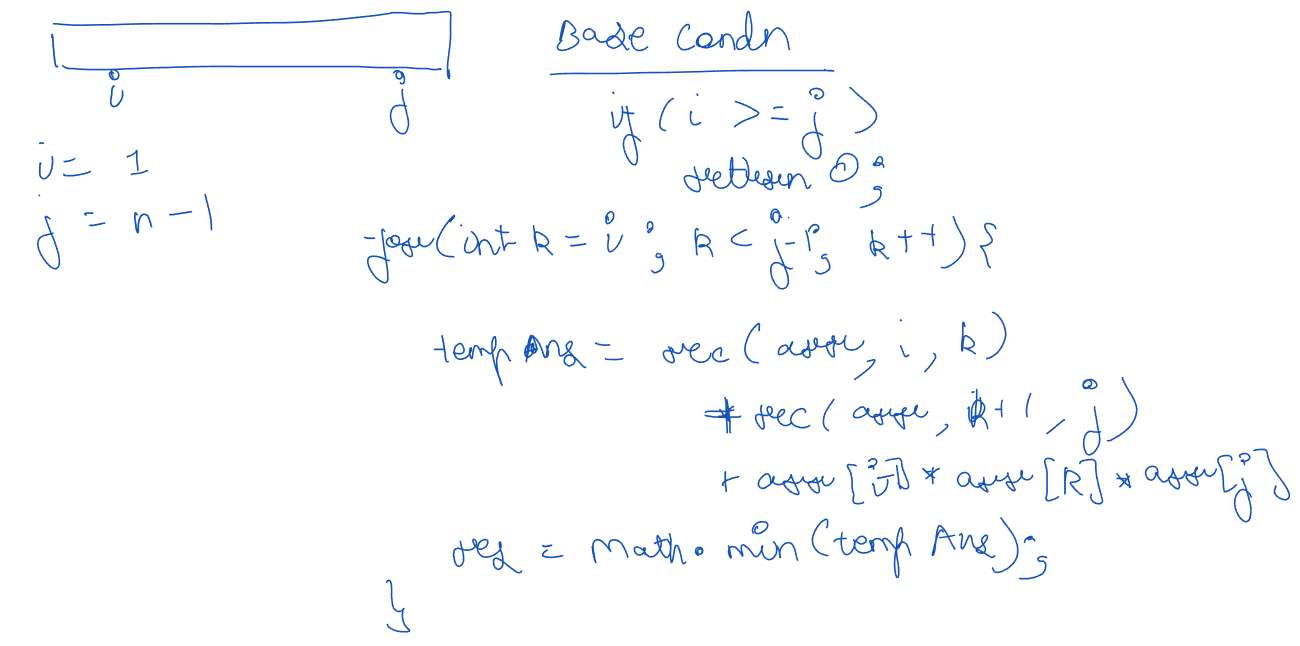 Base Condn
i j
if (i >= j)
return 0;
i = 1
j = n - 1
for (int k = i; k < j-1; k++) {
temp Ans = rec (arr, i, k)
+ rec (arr, k+1, j)
+ arr [i-1] * arr [k] * arr [j]
res = Math.min (temp Ans);
}